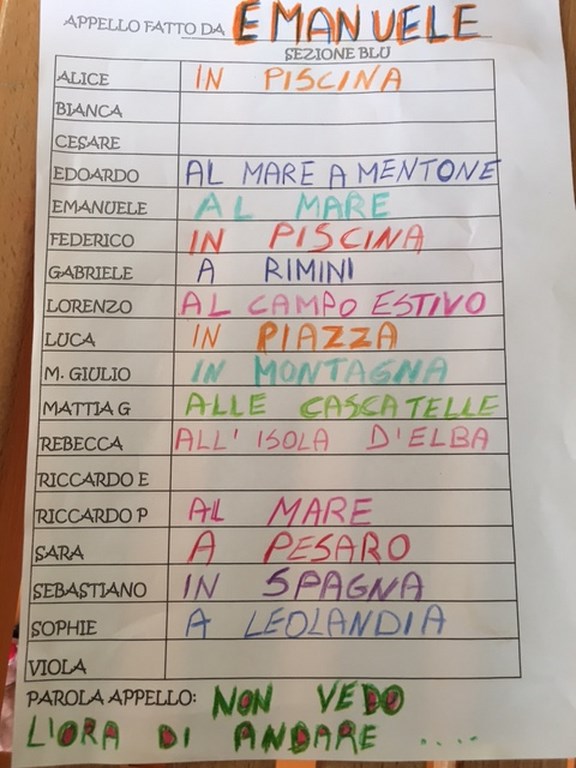 APPELLO FATTO DA EMANUELE
SEZIONE BLU
ALICE IN PISCINA
BIANCA
CESARE
EDOARDO AL MARE A MENTONE
EMANUELE AL MARE
FEDERICO IN PISCINA
GABRIELE A RIMINI
LORENZO AL CAMPO ESTIVO
LUCA IN PIAZZA
M. GIULIO IN MONTAGNA
MATTIA G ALLE CASCATELLE
REBECCA ALL' ISOLA D'ELBA
RICCARDO E
RICCARDO P AL MARE
SARA A PESARO
SEBASTIANO IN SPAGNA
SOPHIE A LEOLANDIA
VIOLA
PAROLA APPELLO: NON VEDO
L'ORA DI ANDARE ....